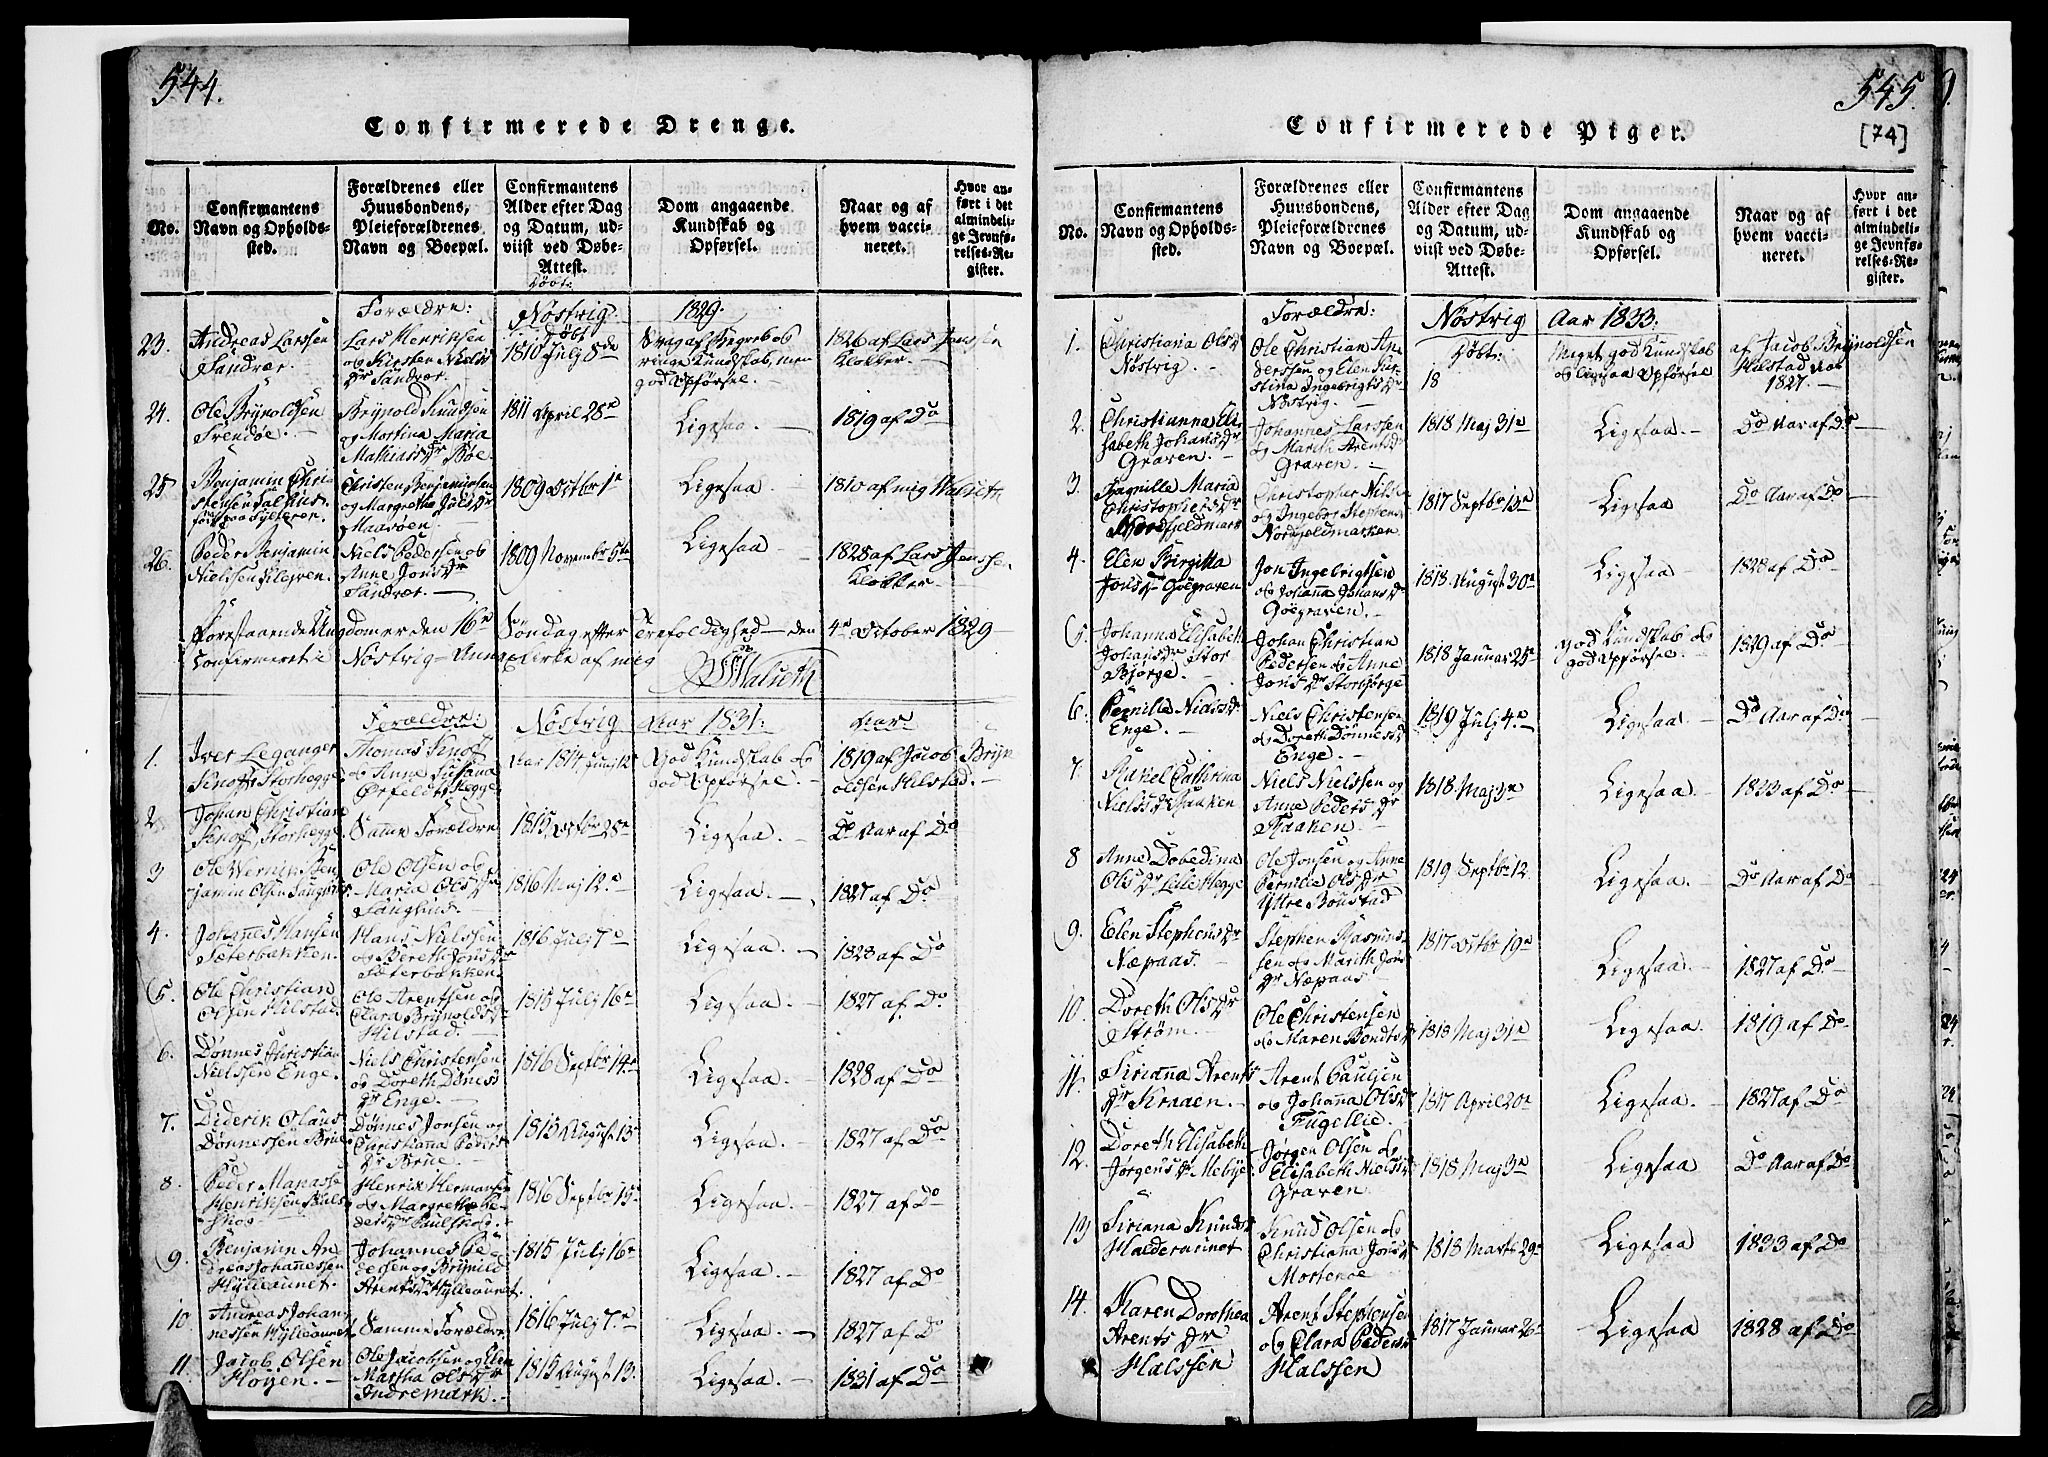 544.
Confirmerede Drenge.
No.
Confirmantens
Navn og Opholds-
sted.
Forældrenes eller
Huusbondens,
Pleieforældrenes
Navn og Boepæl.
Confirmantens
Alder efter Dag
og Datum, ud-
viist ved Døbe-
Attest.
Dom angaaende
Kundskab og
Opførsel.
Naar og af
hvem vacci-
neret.
Hvor an-
ført i det
almindeli-
ge Jevnfø-
relses-Re-
gister.
Forældre:
Nöstvig
1829.
23.
Andreas Larssen
Sandvær.
Lars Henriksen
og Kirsten Niels
Dr Sandvær.
Døbt
1810 Julj 8de
Svag af Begreb og
ringe Kundskab, men
god Opførsel.
1826 af Lars Jenssen
Klokker.
24.
Ole Brynoldsen
Svendöe.
Brynold Knudsen
og Mortina Maria
Mathiasdr Böe.
1811 April 28e
Ligesaa.
1819 af Do
25
Benjamin Chri-
stensen
Christen Benjaminsen
og Margrethe
Maasøen.
1809 Octbr 1e
Ligesaa.
1810 af mig Walseth
26.
Peder Benjamin
Nielsen
Niels Pedersen og
Anne Jonsdr
Sandvær.
1809 Novembr 5te
Ligesaa
1828 af Lars Jenssen
Klokker.
Forestaaende Ungdom er den 16e Söndag efter Trefoldighed den 4e October 1829
Confirmeret i Nöstvig Annex Kirke af mig
Walseth
Forældre:
Nöstvig
Aar 1831.
Aar
1.
Iver Leganger
Knoff Storhegge
Thomas Knoff
og Anna Susana
Ørfeldt Hegge
Aar 1814 Junj 12
God Kundskab og
god Opførsel.
1819 af Jacob Bryn
oldsen Hilstad.
2
Johan Christian
Knoff Storhegge.
Samme Forældre
1815 Octbr 28e
Ligesaa
Do Aar af Do
3
Ole Wernin Ben
jamin Olsen Saughus
Ole Olsen og
Marie Olsdr
Saughus.
1816 Maj 12e
Ligesaa.
1827 af Do
4.
Johannes Hansen
Sæterbakken.
Hans Nielssen
og Bereth Jonsdr
Sæterbakken.
1816 Julj 7e
Ligesaa.
1828 af Do
5.
Ole Christian
Olsen Hilstad
Ole Arentsen og
Clara Brynoldsdr
Hilstad.
1815 Julj 16e
Ligesaa.
1827 af Do
6.
Dønnes Christian
Nielssen Enge.
Niels Christensen
og Doreth Dønnes
Dr Enge.
1816 Septbr 14e
Ligesaa.
1828 af Do
7.
Diderik Olaus
Dønnessen Brue
Dønnes Jonsen og
Christianna Peders
Dr Brue.
1815 August 13e
Ligesaa
1827 af Do
8.
Peder Manasse
Henriksen Pauls
skog
Henrik Hermansen
og Margrethe Pe-
dersdr Paulskog.
1816 Septbr 15e
Ligesaa.
1827 af Do
9.
Benjamin An
dreas Johannessen
Hylleaunet.
Johannes Pe-
dersen og Brynild
Arentsdr Hylleaunet.
1815 Julj 16e
Ligesaa.
1827 af Do
10.
Andreas Johan
nessen Hylleaunet
Samme Forældre
1816 Julj 7e
Ligesaa.
1827 af Do
11.
Jacob Olsen
Hoyen.
Ole Jacobsen og Elen
Martha Olsdr
Indremark.
1815 August 13.
Ligesaa.
1831 af Do
545.
[74]
Confirmerede Piger.
No.
Confirmantens
Navn og Opholds-
sted.
Forældrenes eller
Huusbondens,
Pleieforældrenes
Navn og Boepæl.
Confirmantens
Alder efter Dag
og Datum, ud-
viist ved Døbe-
Attest.
Dom angaaende
Kundskab og
Opførsel.
Naar og af
hvem vacci-
neret.
Hvor an-
ført i det
almindeli-
ge Jevnfø-
relses-Re-
gister.
Forældre:
Nöstvig
Aar 1833.
1.
Christiana Olsdr
Nöstvig.
Ole Christian An-
derssen og Elen Kir-
stina Ingebrigtsdr
Nöstvig.
Döbt:
18
Meget god Kundskab
og ligesaa Opførsel
af Jacob Brynoldsen
Hilstad Aar
1827.
2.
Christianna Eli
sabeth Johansdr
Graven.
Johannes Larssen
og Marith Arentsdr
Graven.
1818 Maj 31e
Ligesaa.
Do Aar af Do
3.
Pagnille Maria
Christophersdr
Nordfjeldmark
Christopher Nilsen
og Ingebor Stephens
Nordfjeldmarken
1817 Septbr 13e
Ligesaa
Do Aar af Do
4.
Elen Birgitta
Jonsdr Goegraven
Jon Ingebrigtsen
og Johanna Johansdr
Goegraven.
1818 August 30e
Ligesaa
1828 af Do
5.
Johanna Elisabeth
Johansdr Stor
Bjørge.
Johan Christian
Pedersen og Anne
Jonsdr Storbjørge
1818 Januar 25e
God Kundskab og
god Opførsel.
1829 af Do
6.
Pernille Nielsdr
Enge.
Niels Christensen
og Doreth Dønnesdr
Enge.
1819 Julj 4e
Ligesaa
Do Aar af Do
7.
Rakel Cathrina
Nielsdr Haaken
Niels Nielssen og
Anne Pedersdr
Haaken.
1818 Maj 3e
Ligesaa.
1833 af Do
8
Anne Dobedina
Olsdr Lille Hegge
Ole Jonsen og Anne
Pernille Olsdr
Yttre Bonstad
1819 Septbr 12.
Ligesaa.
Do Aar af Do
9.
Elen Stephensdr
Næpaas.
Stephen Rasmus-
sen og Marith Jons
Dr Næpaas.
1817 Octbr 19e
Ligesaa.
1827 af Do
10.
Doreth Olsdr
Strøm.
Ole Christensen
og Maren Bendtsdr
1818 Maj 31e
Ligesaa.
1819 af Do
11.
Siriana Arents
Dr Kraaen.
Arent Paulsen
og Johanna Olsdr
Fugellie.
1817 April 20e
Ligesaa
1827 af Do
12.
Doreth Elisabeth
Jørgensdr Mebye
Jørgen Olsen og
Elisabeth Nielsdr
Graven
1818 Maj 3e
Ligesaa
Do Aar af Do
13
Siriana Knuds
Halderaunet
Knud Olsen og
Christiana Jonsdr
Mortenöe
1818 Marts 29e
Ligesaa
1833 af Do
14.
Karen Dorothea
Arentsdr
Halssen
Arent Stephensen
og Clara Pedersdr
Halssen
1817 Januar 26e
Ligesaa
1828 af Do